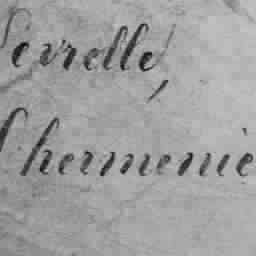 Sevrelle,
L'hermenie